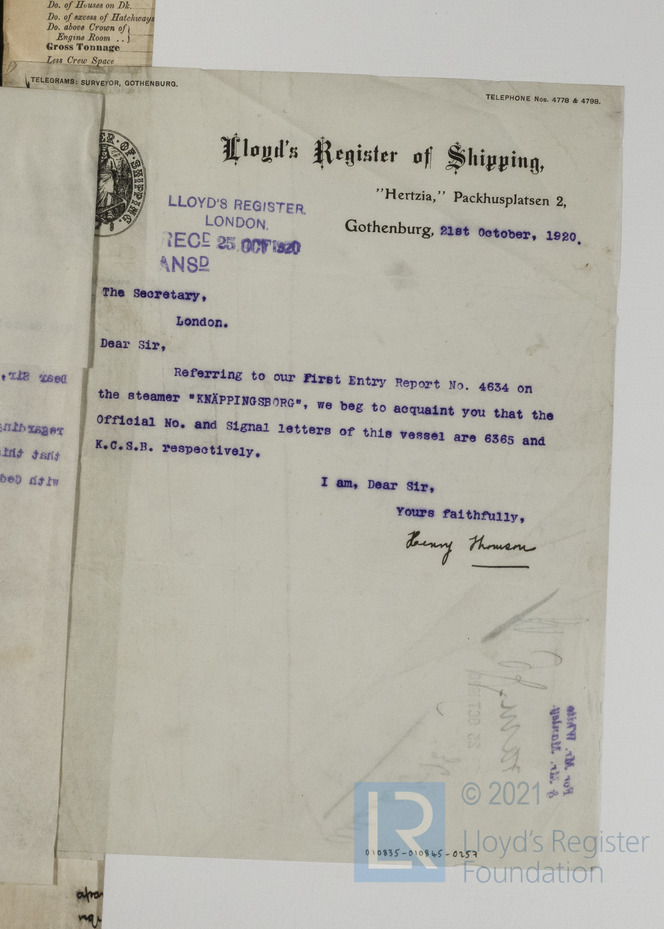 Do. of Houses on Dk.
Do. of excess of Hatchways
Do. above Crown of
Engine Room ..
Gross Tonnage
Less Crew Space
TELEGRAMS: SURVEYOR, GOTHENBURG.
TELEPHONE Nos. 4778 & 4798.
Lloyd's Register of Shipping,
"Hertzia," Packhusplatsen 2,
Gothenburg, 21st October, 1920.
LLOYD'S REGISTER.
LONDON.
RECD 25 OCT 1920
ANSD
The Secretary,
London.
Dear Sir,
Referring to our First Entry Report No. 4634 on
the steamer "KNÄPPINGSBORG", we beg to acquaint you that the
Official No. and Signal letters of this vessel are 6365 and
K.C.S.B. respectively.
I am, Dear Sir,
Yours faithfully,
Henry Thomson
010835-010845-0257
LR
© 2021
Lloyd's Register
Foundation